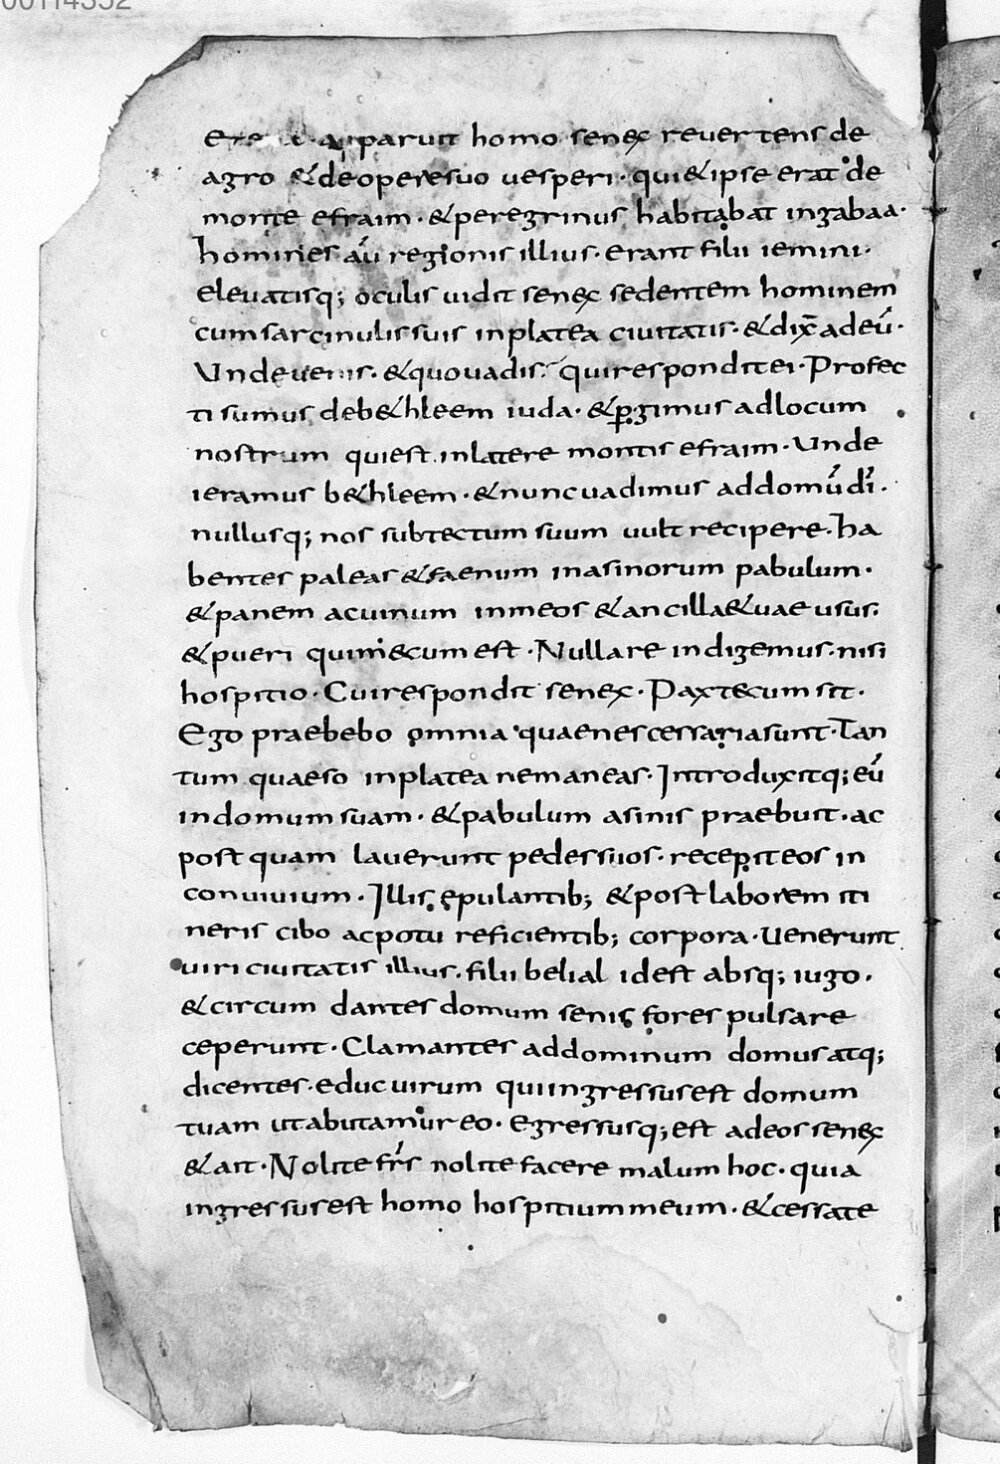 00114352
apparuit homo senex revertens de
agro & de opere suo uesperi · qui & ipse erat de
monte efraim · & peregrinus habitabat in gabaa ·
homines aū regionis illius · erant filii iemini ·
eleuatisq; oculis uidit senex sedentem hominem
cum sarcinulis suis in platea ciuitatis · & dix̄ ad eū ·
Unde uenis · & quo uadis · qui respondit ei · Profec
ti sumus de b&hleem iuda · & ꝑgimus ad locum
nostrum qui est in latere montis efraim · Unde
ieramus b&hleem · & nunc uadimus ad domū dī ·
nullusq; nos sub tectum suum uult recipere · ha
bentes paleas & faenum in asinorum pabulum ·
& panem ac uinum in meos & ancillae uae usus ·
& pueri qui mecum est · Nulla re indigemus · nisi
hospitio · Cui respondit senex · Pax tecum sit ·
Ego praebebo omnia quae nescessaria sunt · Tan
tum quaeso in platea ne maneas · Introduxitq; eū
in domum suam · & pabulum asinis praebuit · ac
post quam lauerunt pedes suos · recepit eos in
conuiuium · Illis epulantib; & post laborem iti
neris cibo ac potu reficientib; corpora · Uenerunt
uiri ciuitatis illius · filii belial id est absq; iugo ·
& circum dantes domum senis fores pulsare
ceperunt · Clamantes ad dominum domus atq;
dicentes · educ uirum qui ingressus est domum
tuam ut abutamur eo · Egressusq; est ad eos senex
& ait · Nolite frs̄ nolite facere malum hoc · quia
ingressus est homo hospitium meum · & cessate